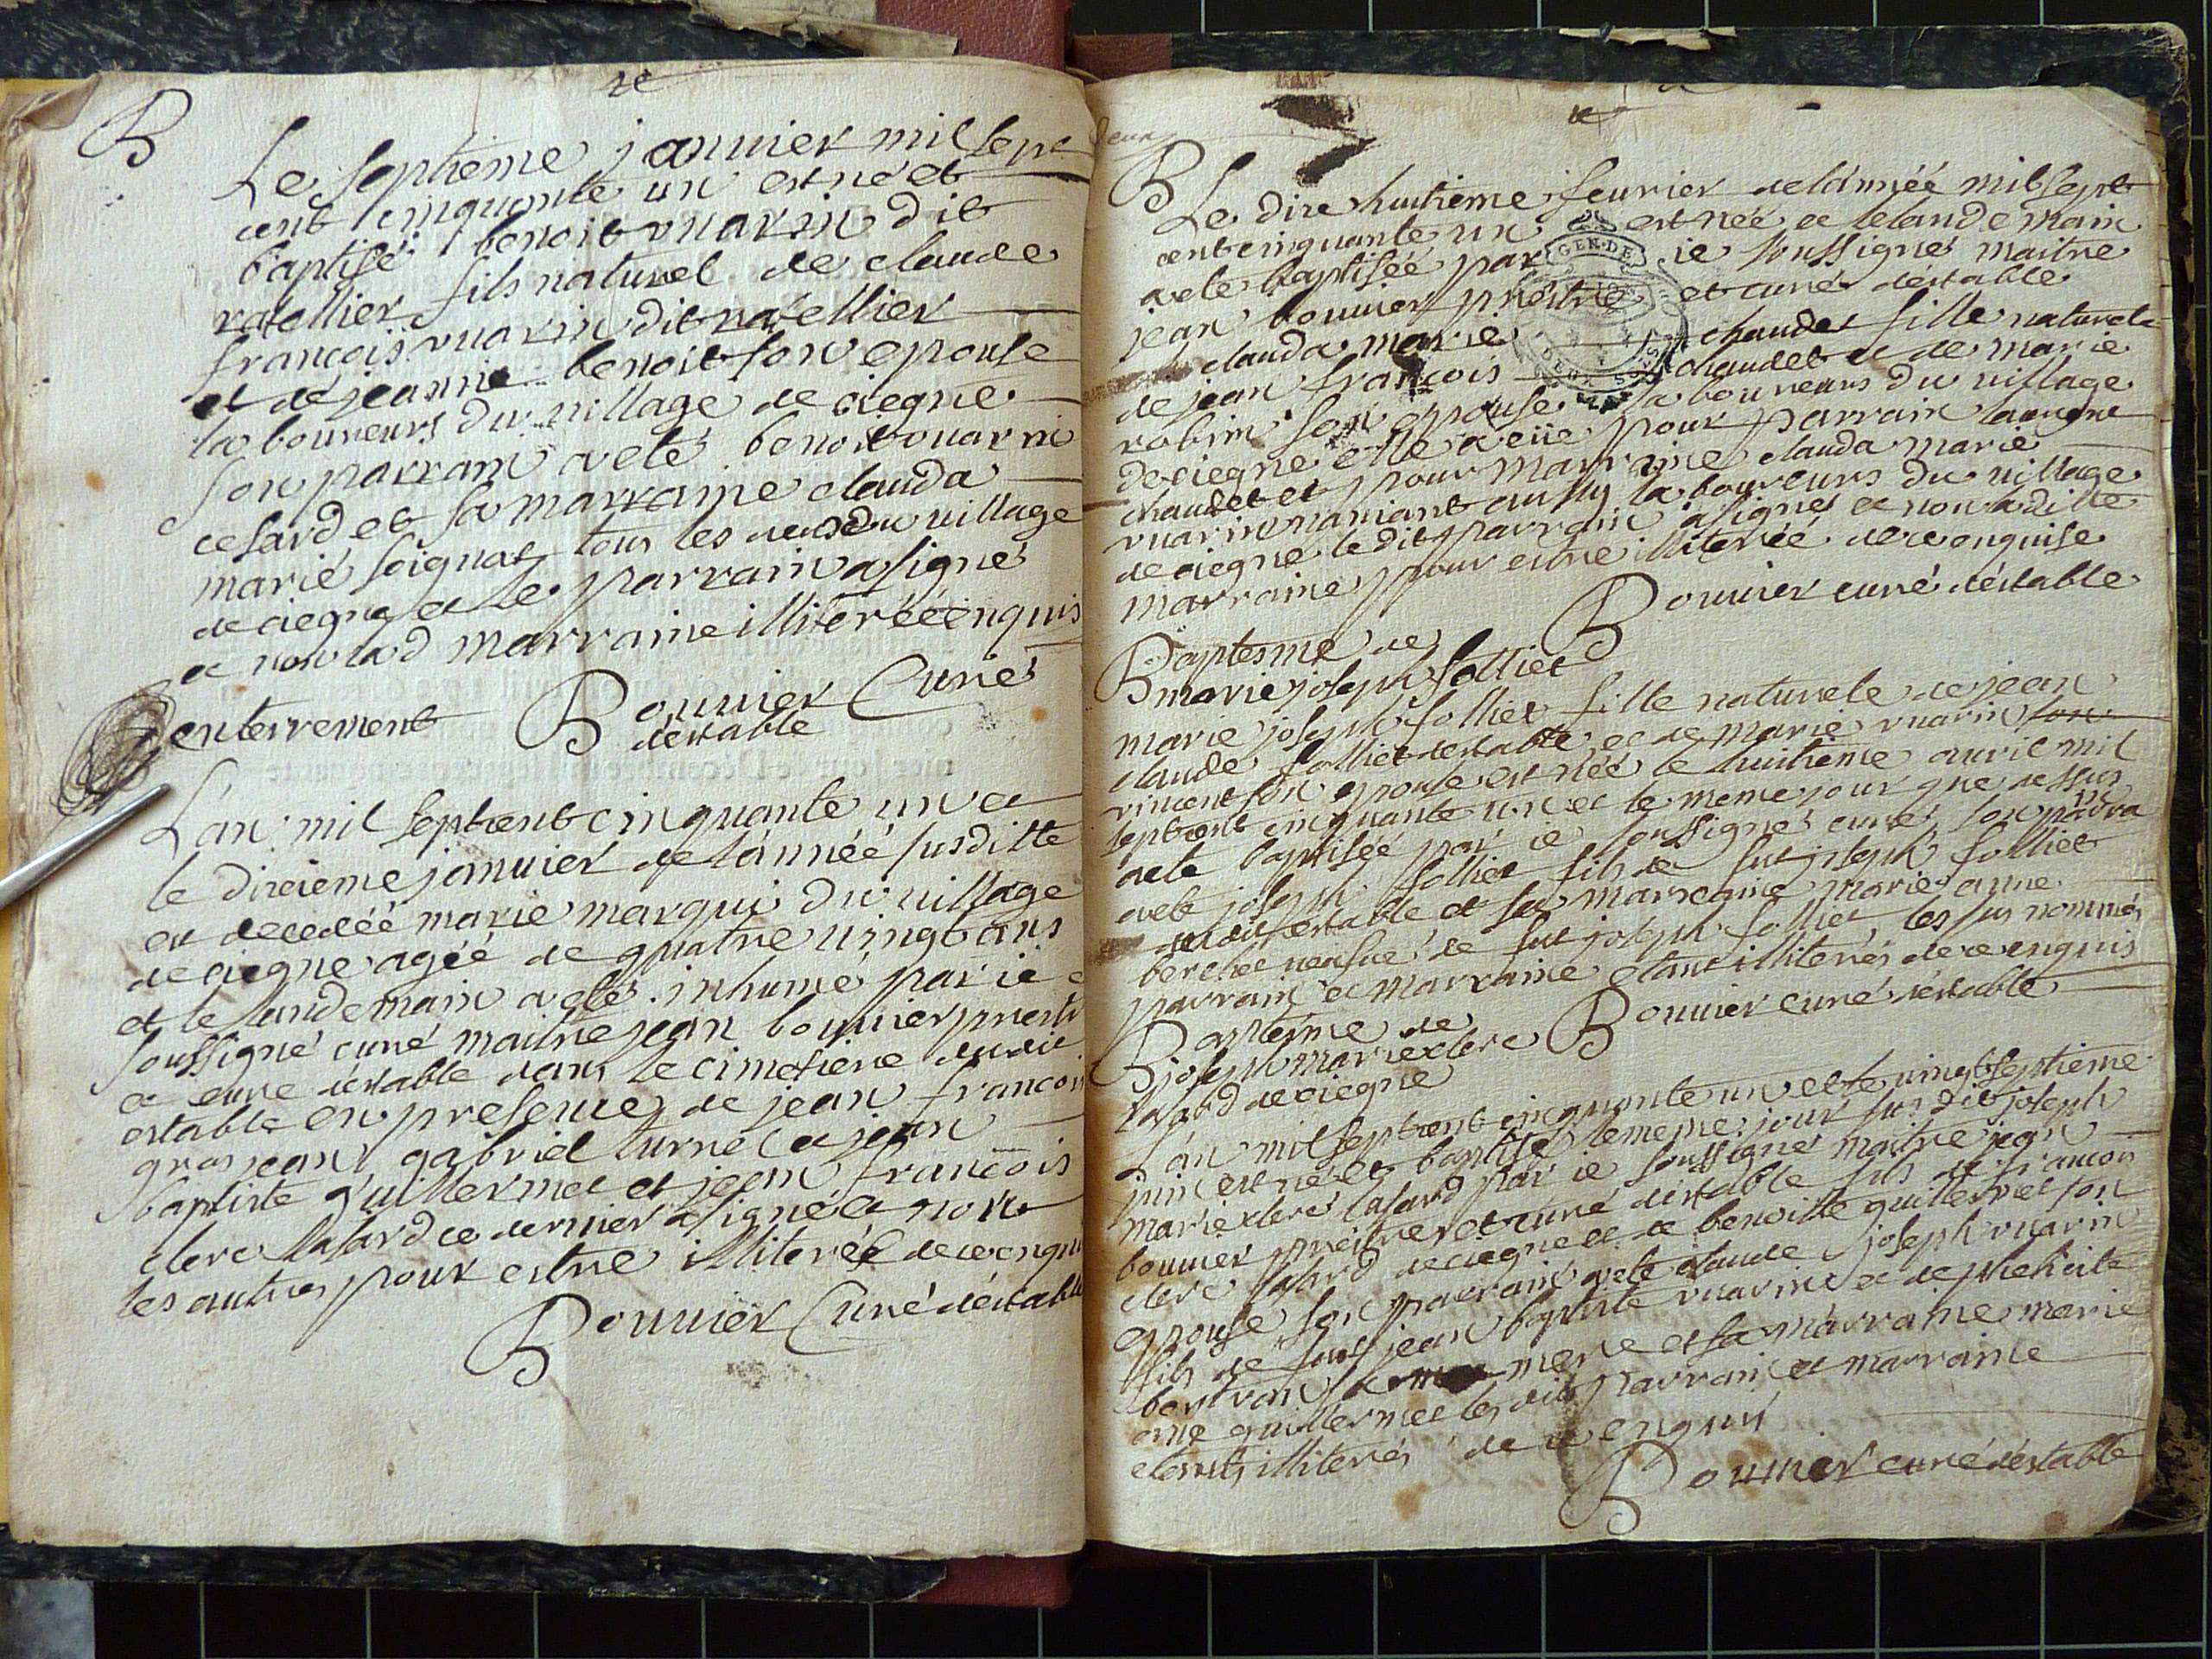 B
Le septieme januier mil sept
cent cinquante un est né et
baptisé benoit vuarin dit
ratellier fils naturel de claude
francois vuarin dit ratellier
et de jeanne benoit son epouse
laboureurs du village de ciegne
son parrain a eté benoit vuarin
cesard et sa marraine clauda
marie soignat tous les deux du village
de ciegne et le parrain a signé
et non lad marraine illiterée enquis
Bouuier Curé
destable
enterrement
L'an mil septcent cinquante un et
le dixieme januier de l'année susditte
est decedéé marie marqui du village
de ciegne agéé de quatre uingt ans
et le lendemain a eté inhumé par ie
soussigné curé maitre jean bouuier prestre
et curé destable dans le cimetiere dudit
estable en presence de jean francois
grosjean gabriel turnel et jean
baptiste guillermet et jean francois
clerc lasard ce dernier a signé et non
les autres pour estre illiteréé de ce enquis
Bouuier Curé destable
deux
B
Le dixe huitieme feurier de l'année mil sept
cent cinquante un est néé et le landemain
a eté baptiséé par ie soussigné maitre
jean bouuier prestre et curé destable
clauda marie chaudet fille naturele
de jean francois chaudet et de marie
robin son epouse laboureurs du village
de ciegne elle a eüe pour parrain
chaudet et pour marraine clauda marie
vuarin aussy laboureurs du village
de ciegne ledit parrain a signé et non laditte
marraine pour estre illiteréé de ce enquise
Bouuier curé destable
Baptesme de
marie joseph folliet
marie joseph folliet fille naturele de jean
claude folliet destable et de marie vuarin
vincent son epouse est néé le huitieme auril mil
septcent cinquante un et le meme jour que dessus
a eté baptiséé par ie soussigné curé son parrain
a eté joseph folliet fils de fut joseph folliet
dudit estable et sa marraine marie anne
berthet ueufue de fut joseph folliet les sus nommés
parrain et marraine etant illiterés de ce enquis
Bouuier curé destable
Baptesme de
joseph marie clerc
lasard de ciegne
L'an mil septcent cinquante un et le uingt septieme
juin est né et baptisé le meme jour sus dit joseph
marie clerc lasard par ie soussigné maitre jean
bouuier prestre et curé destable fils de francois
clerc lasard de ciegne et de benoitte guillermet son
epouse son parrain a eté claude joseph vuarin
fils de fut jean baptiste vuarin et de phelicite
bertran sa mere et sa marraine marie
ane guillermet les dits parrain et marraine
etants illiterés de ce enquis
Bouuier curé destable